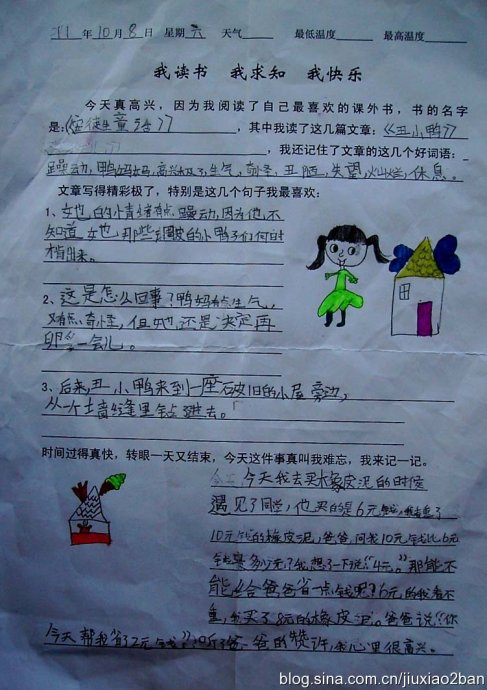 11 年 10 月 8 日 星期 六 天气 最低温度 最高温度
我读书 我求知 我快乐
今天真高兴，因为我阅读了自己最喜欢的课外书，书的名字
是：《安徒生童话》，其中我读了这几篇文章：《丑小鸭》
，我还记住了文章的这几个好词语：
躁动，鸭妈妈，高兴极了，生气，奇怪，丑陋，失望，灿烂，休息。
文章写得精彩极了，特别是这几个句子我最喜欢：
1、她的情绪有点躁动，因为他不
知道她那些调皮的小鸭子们何时
才出来。
2、这是怎么回事？鸭妈有点生气，
又有点奇怪，但她还是决定再
卵一会儿。
3、后来，丑小鸭来到一座破旧的小屋旁边，
从一个墙缝里钻进去。
时间过得真快，转眼一天又结束，今天这件事真叫我难忘，我来记一记。
今天我去买橡皮泥的时候
遇见了同学，他买的是6元的，我看重了
10元钱的橡皮泥，爸爸问我10元钱比6元
钱贵多少元？我想了一下说“4元。”那能不
能给爸爸省一点钱呢？6元的我看不
重，我买了8元的橡皮泥。爸爸说“你
今天帮我省了2元钱”，听了爸爸的赞许，我心里很高兴。
blog.sina.com.cn/jiuxiao2ban